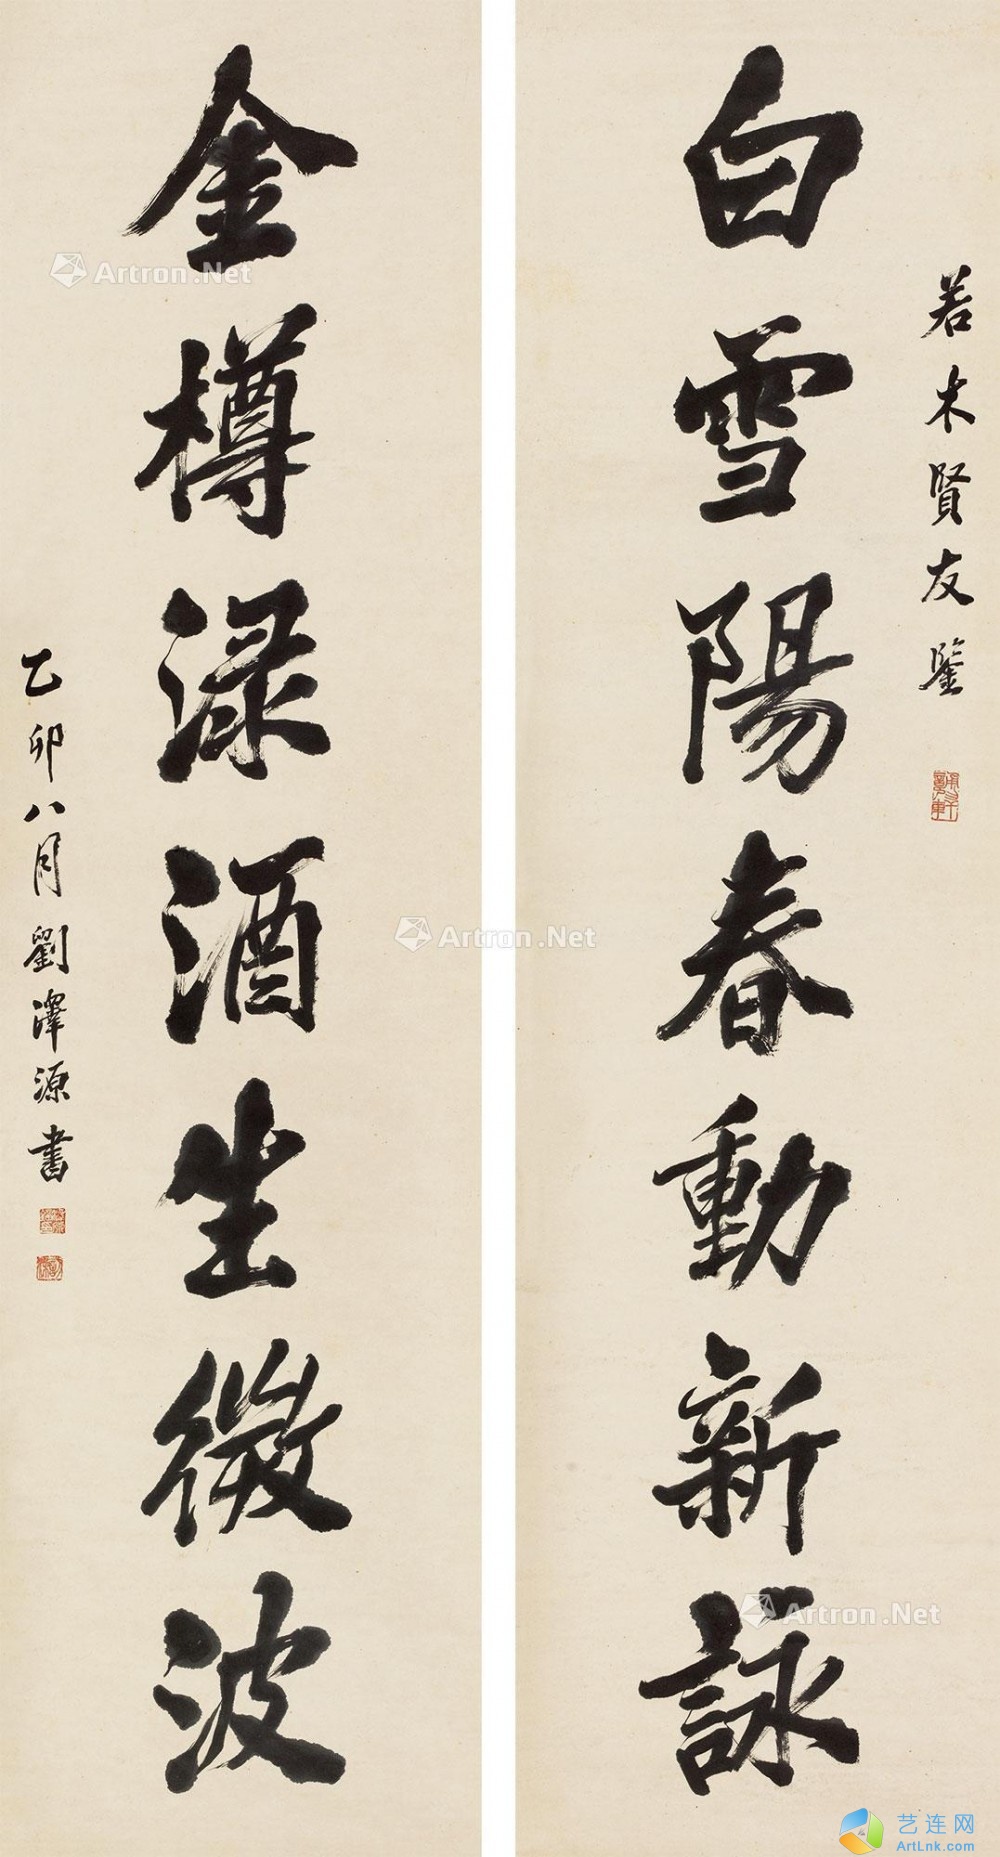 若木賢友鑒
白雪陽春動新詠
金樽渌酒生微波
乙卯八月劉澤源書
Artron.Net
Artron.Net
Artron.Net
艺连网
ArtLnk.com